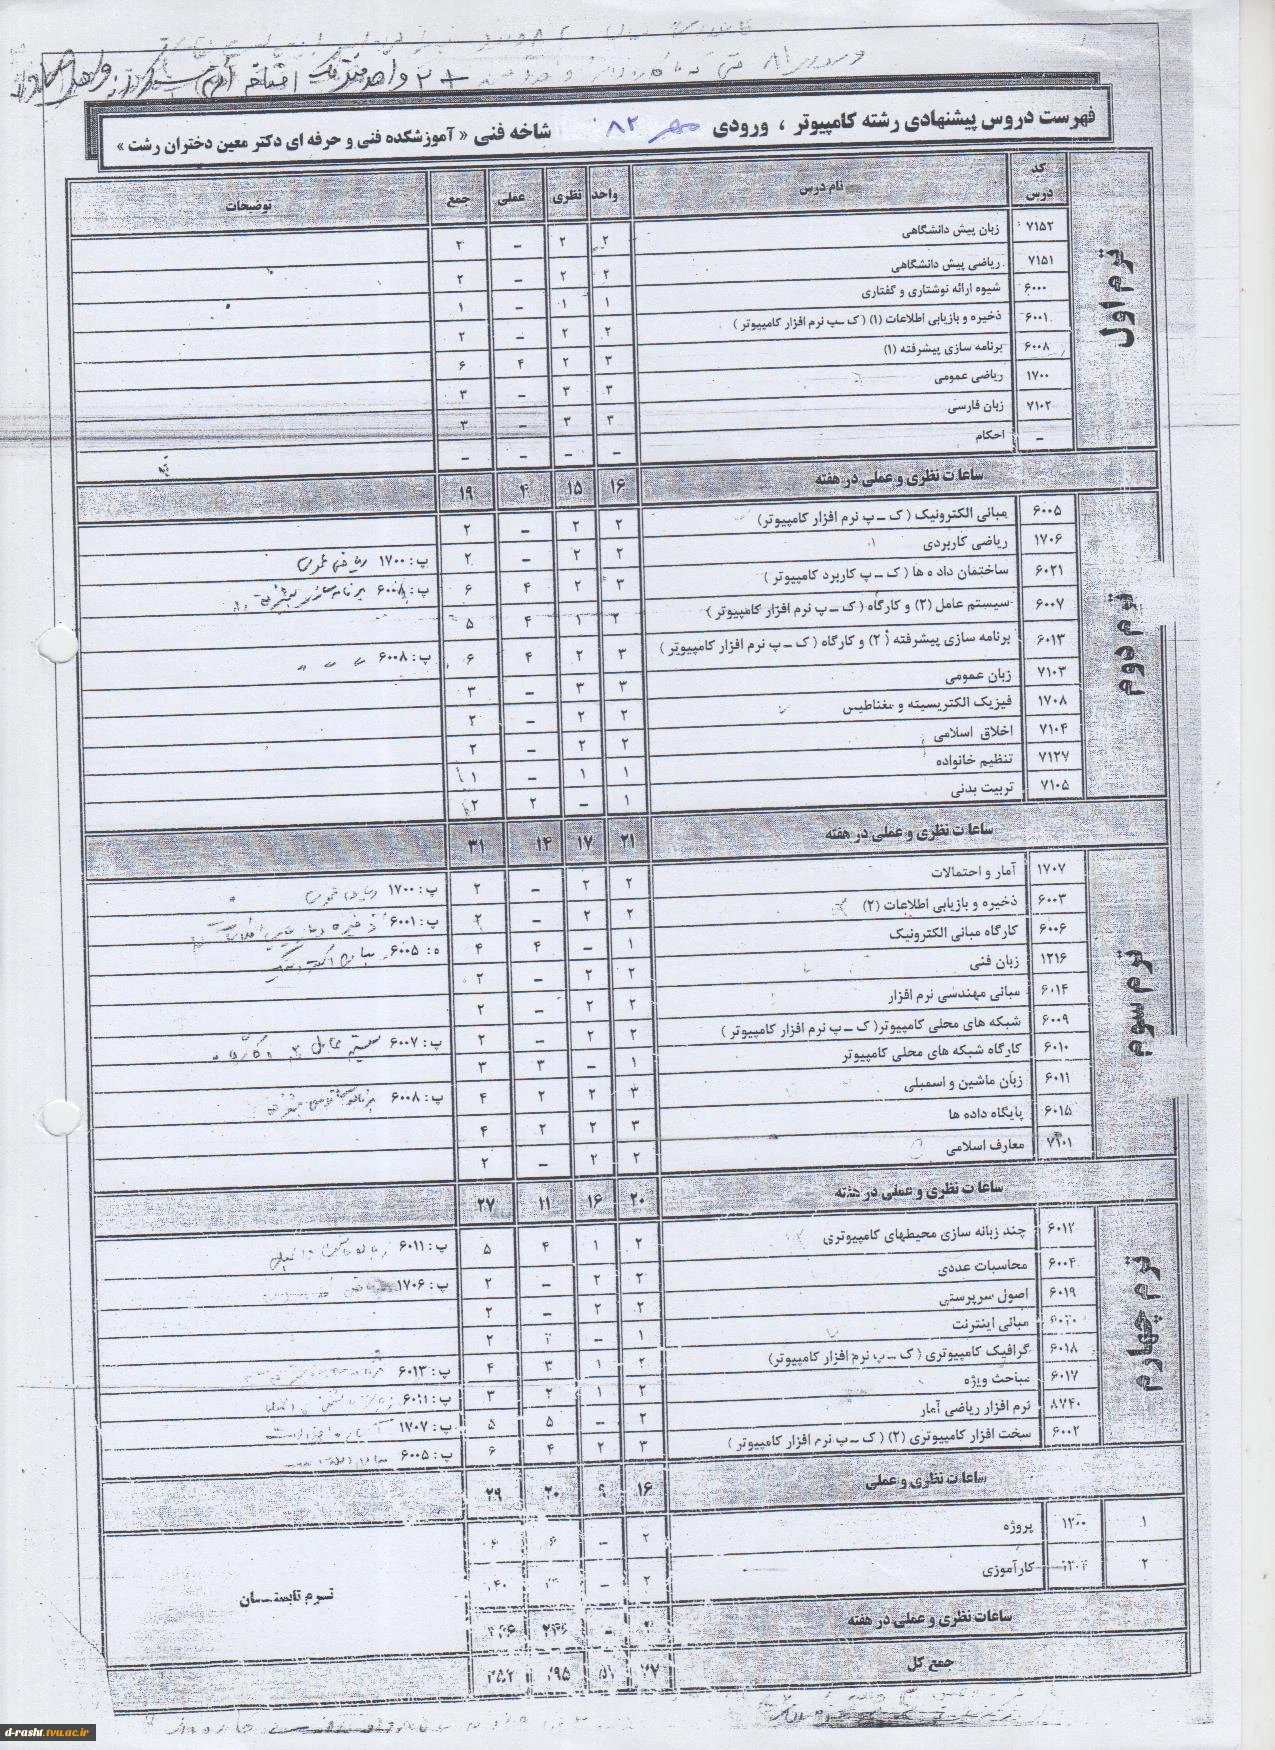 ۲+ واحد
فهرست دروس پیشنهادی رشته کامپیوتر ، ورودی مهر ۸۲ شاخه فنی « آموزشکده فنی و حرفه ای دکتر معین دختران رشت »
کد درس نام درس واحد نظری عملی جمع توضیحات
ترم اول
۷۱۵۲ زبان پیش دانشگاهی ۲ ۲ – ۲
۷۱۵۱ ریاضی پیش دانشگاهی ۲ ۲ – ۲
۶۰۰۰ شیوه ارائه نوشتاری و گفتاری ۱ ۱ – ۱
۶۰۰۱ ذخیره و بازیابی اطلاعات (۱) ( ک ـ پ نرم افزار کامپیوتر ) ۲ ۲ – ۲
۶۰۰۸ برنامه سازی پیشرفته (۱) ۳ ۲ ۴ ۶
۱۷۰۰ ریاضی عمومی ۳ ۳ – ۳
۷۱۰۲ زبان فارسی ۳ ۳ – ۳
– احکام – – – –
ساعات نظری و عملی در هفته ۱۶ ۱۵ ۴ ۱۹
ترم دوم
۶۰۰۵ مبانی الکترونیک ( ک ـ پ نرم افزار کامپیوتر) ۲ ۲ – ۲
۱۷۰۶ ریاضی کاربردی ۲ ۲ – ۲ پ : ۱۷۰۰ ریاضی عمومی
۶۰۲۱ ساختمان داده ها ( ک ـ پ کاربرد کامپیوتر ) ۳ ۲ ۴ ۶ پ : ۶۰۰۸ برنامه سازی پیشرفته
۶۰۰۷ سیستم عامل (۲) و کارگاه ( ک ـ پ نرم افزار کامپیوتر ) ۲ ۱ ۴ ۵
۶۰۱۳ برنامه سازی پیشرفته (۲) و کارگاه ( ک ـ پ نرم افزار کامپیوتر ) ۳ ۲ ۴ ۶ پ : ۶۰۰۸ " " "
۷۱۰۳ زبان عمومی ۳ ۳ – ۳
۱۷۰۸ فیزیک الکتریسیته و مغناطیس ۲ ۲ – ۲
۷۱۰۴ اخلاق اسلامی ۲ ۲ – ۲
۷۱۲۷ تنظیم خانواده ۱ ۱ – ۱
۷۱۰۵ تربیت بدنی ۱ – ۲ ۲
ساعات نظری و عملی در هفته ۲۱ ۱۷ ۱۴ ۳۱
ترم سوم
۱۷۰۷ آمار و احتمالات ۲ ۲ – ۲ پ : ۱۷۰۰ ریاضی عمومی
۶۰۰۳ ذخیره و بازیابی اطلاعات (۲) ۲ ۲ – ۲ پ : ۶۰۰۱ ذخیره و بازیابی اطلاعات
۶۰۰۶ کارگاه مبانی الکترونیک ۱ – ۴ ۴ ه : ۶۰۰۵ مبانی الکترونیک
۱۲۱۶ زبان فنی ۲ ۲ – ۲
۶۰۱۴ مبانی مهندسی نرم افزار ۲ ۲ – ۲
۶۰۰۹ شبکه های محلی کامپیوتر( ک ـ پ نرم افزار کامپیوتر ) ۲ ۲ – ۲ پ : ۶۰۰۷ سیستم عامل ۲ و کارگاه
۶۰۱۰ کارگاه شبکه های محلی کامپیوتر ۱ – ۳ ۳
۶۰۱۱ زبان ماشین و اسمبلی ۳ ۲ ۲ ۴ پ : ۶۰۰۸ برنامه سازی پیشرفته
۶۰۱۵ پایگاه داده ها ۳ ۲ ۲ ۴
۷۱۰۱ معارف اسلامی ۲ ۲ – ۲
ساعات نظری و عملی در هفته ۲۰ ۱۶ ۱۱ ۲۷
ترم چهارم
۶۰۱۲ چند زبانه سازی محیطهای کامپیوتری ۲ ۱ ۴ ۵ پ : ۶۰۱۱
۶۰۰۴ محاسبات عددی ۲ ۲ – ۲ پ : ۱۷۰۶
۶۰۱۹ اصول سرپرستی ۲ ۲ – ۲
۶۰۲۰ مبانی اینترنت ۱ – ۲ ۲
۶۰۱۸ گرافیک کامپیوتری ( ک ـ پ نرم افزار کامپیوتر) ۲ ۱ ۳ ۴ پ : ۶۰۱۳
۶۰۱۷ مباحث ویژه ۲ ۱ ۲ ۳ پ : ۶۰۱۱
۸۷۴۰ نرم افزار ریاضی آمار ۲ – ۵ ۵ پ : ۱۷۰۷
۶۰۰۲ سخت افزار کامپیوتری (۲) ( ک ـ پ نرم افزار کامپیوتر ) ۳ ۲ ۴ ۶ پ : ۶۰۰۵
ساعات نظری و عملی ۱۶ ۹ ۲۰ ۲۹
۱ ۱۲۰۰ پروژه ۲ – ۶ ۶
۲ کارآموزی ۲ –
ترم تابستان
ساعات نظری و عملی در هفته
جمع کل
d-rasht.tvu.ac.ir